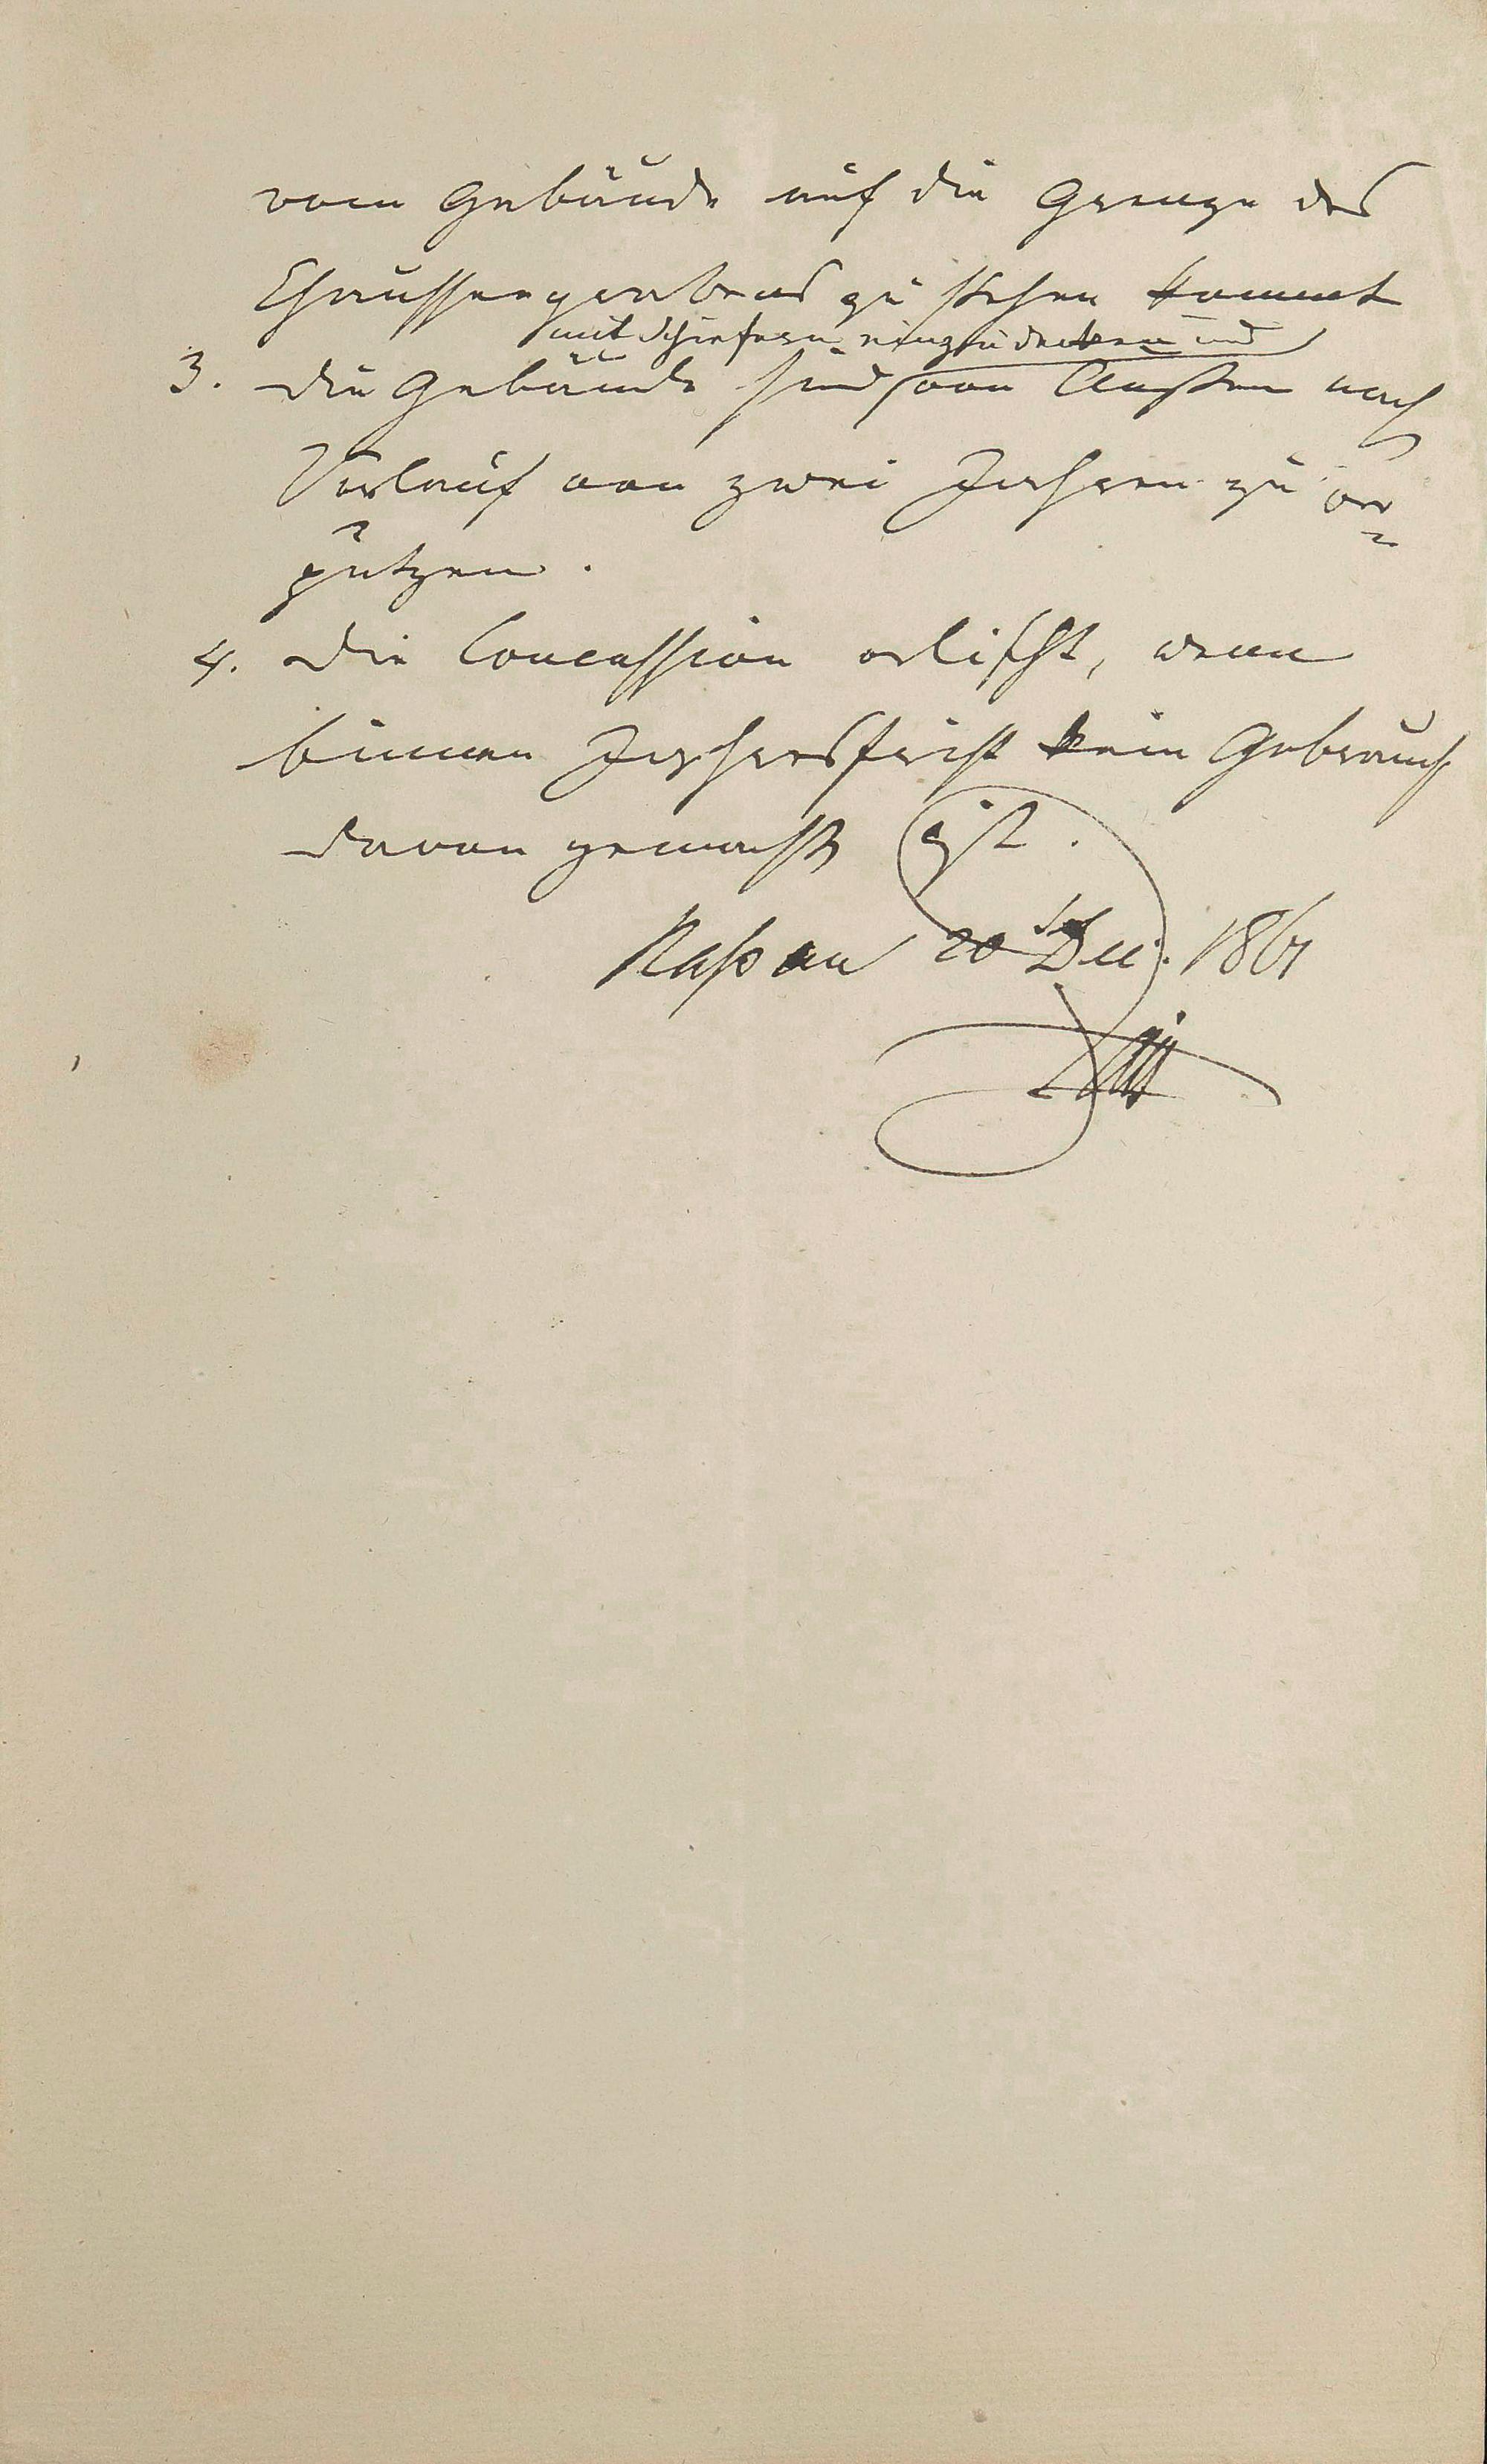 vom Gebäude auf die Grenze des
Chausseegrabens zu stehen kommt
mit Schiefern einzudecken und
3. die Gebäude sind von Außen nach
Verlauf von zwei Jahren zu ver=
putzen.
4. Die Concession erlischt, wenn
binnen Jahresfrist kein Gebrauch
davon gemacht ist.
Naßau 20ten Dec. 1861